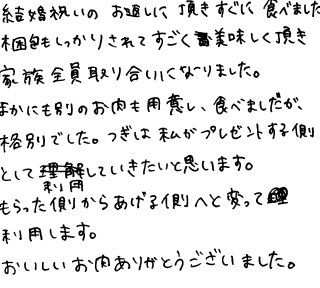 結婚祝いの お返しに 頂きすぐに 食べました
梱包もしっかりされてすごく美味しく頂き
家族全員取り合いになりました。
ほかにも別のお肉も用意し、食べましたが、
格別でした。つぎは 私がプレゼントする側
として理解していきたいと思います。
利用
もらった側からあげる側へと変って
利用します。
おいしいお肉ありがとうございました。